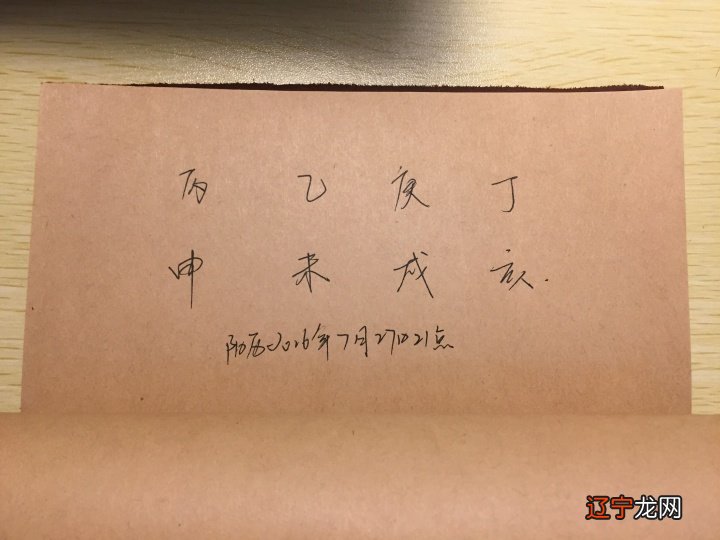 丙 乙 庚 丁
申 未 戌 亥.
阳历2026年7月27日21点
辽宁龙网